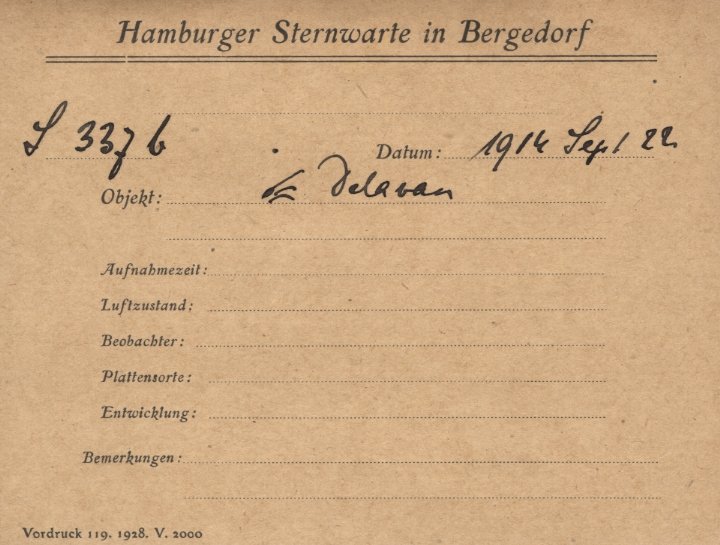 Hamburger Sternwarte in Bergedorf
S 337 b
Datum: 1914 Sept 22
Objekt: Delavan
Aufnahmezeit:
Luftzustand:
Beobachter:
Plattensorte:
Entwicklung:
Bemerkungen:
Vordruck 119. 1928. V. 2000